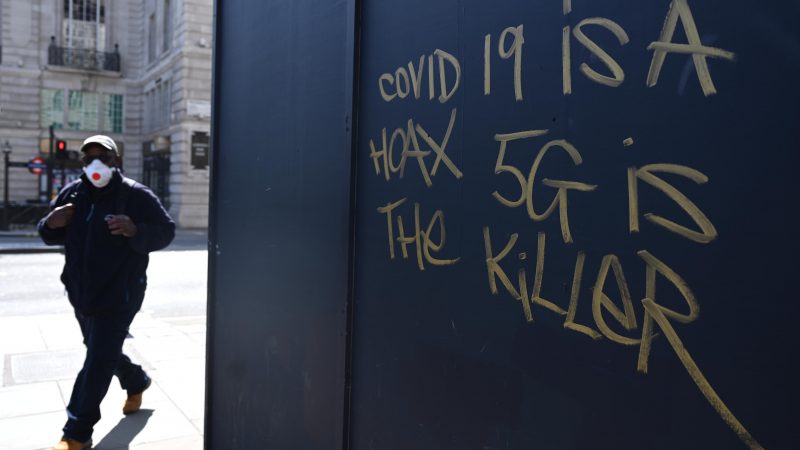 COVID 19 is A
HOAX 5G is
The Killer